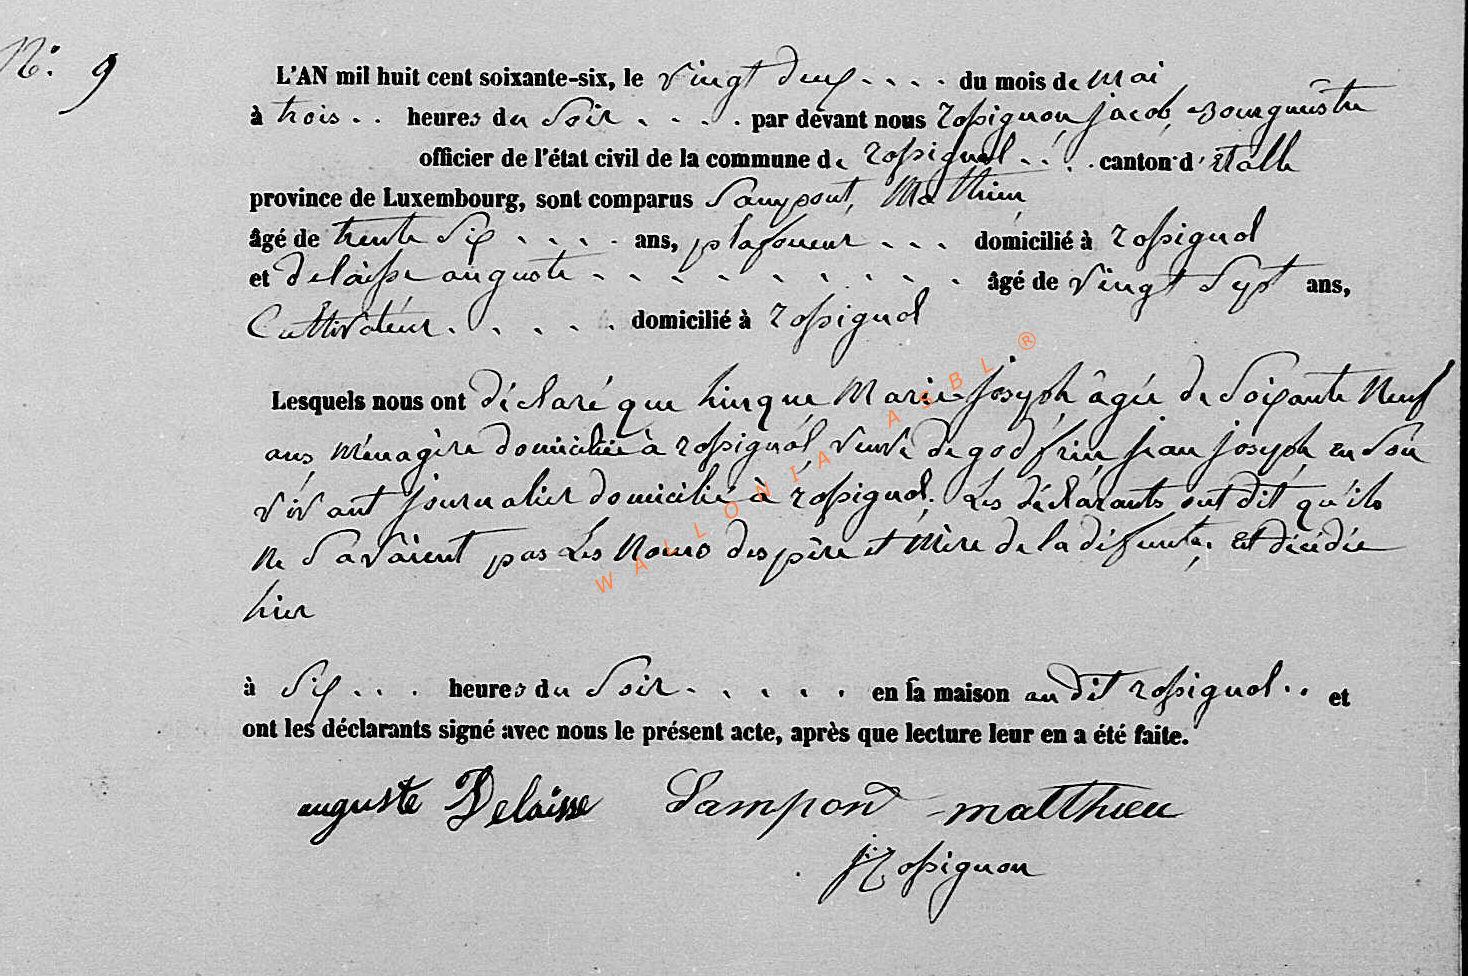 N°. 9
L'AN mil huit cent soixante-six, le vingt deux . . . . du mois de mai
à trois . . heures du Soir . . . . par devant nous Rossignon, jacob, Bourgmestre
officier de l'état civil de la commune de rossignol . . . . canton d'Etalle
province de Luxembourg, sont comparus Sampont, Mathieu
âgé de trente Six . . . . ans, plafoneur . . . domicilié à rossignol
et Delaisse auguste . . . . . . . . . . âgé de vingt Sept ans,
Cultivateur . . . . . domicilié à rossignol
Lesquels nous ont déclaré que hinque Marie-Joseph âgée de Soixante Neuf
ans, ménagère domiciliée à rossignol, veuve de godfrin jean joseph, en Son
vivant journalier domicilié à rossignol. Les déclarants ont dit qu'ils
ne Savaient pas Les Noms des père et Mère de la défunte, Est décédée
hier
à Six . . . heures du Soir . . . . . en sa maison au dit rossignol . . et
ont les déclarants signé avec nous le présent acte, après que lecture leur en a été faite.
auguste Delaisse Sampont matthieu
J Rossignon
WALLONIA ASBL ®